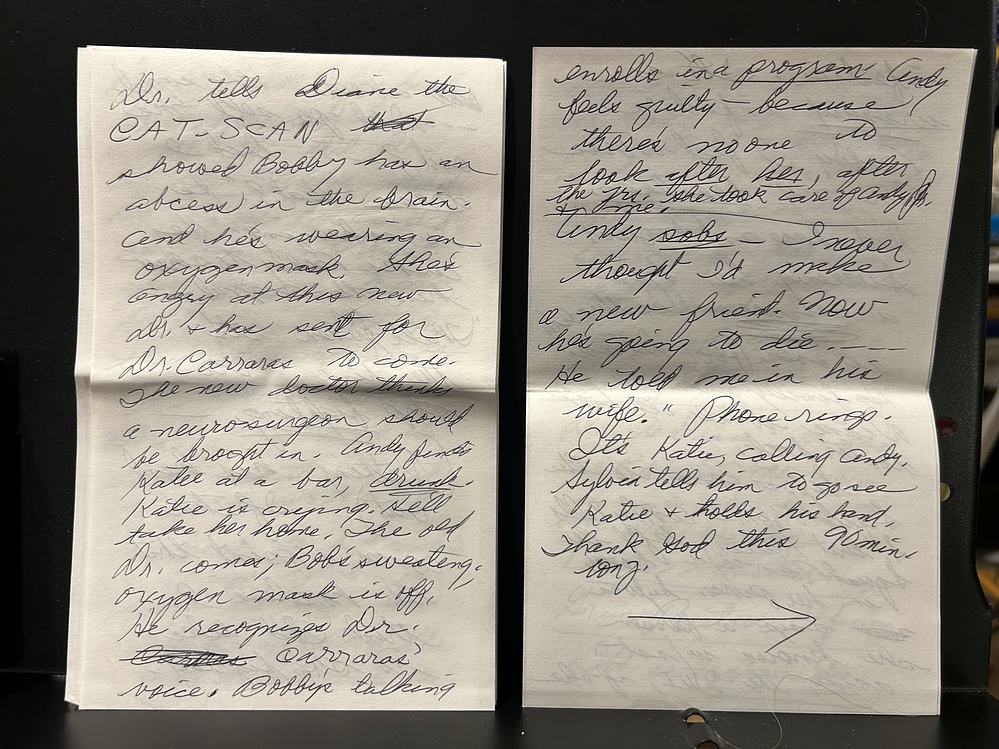 Dr. tells Diane the
CAT-SCAN that
showed Bobby has an
abcess in the brain.
and he's wearing an
oxygen mask. She's
angry at this new
Dr. & has sent for
Dr. Carraras to come.
The new doctor thinks
a neurosurgeon should
be brogt in. Andy finds
Katie at a bar, drunk.
Katie is crying. He'll
take her home. The old
Dr. comes; Bob's sweating,
oxygen mask is off.
He recognizes Dr.
Carraras'
voice. Bobby's talking
enrolls in a program. Andy
feels guilty - because
there's no one to
look after her, after
the yrs. she took care of Andy Jr.
& me.
Andy sobs - I never
thought I'd make
a new friend. Now
he's going to die. ---
He told me in his
wife." Phone rings.
It's Katie, calling Andy.
Sylvia tells him to go see
Katie & holds his hand.
Thank God this 90 min.
long.